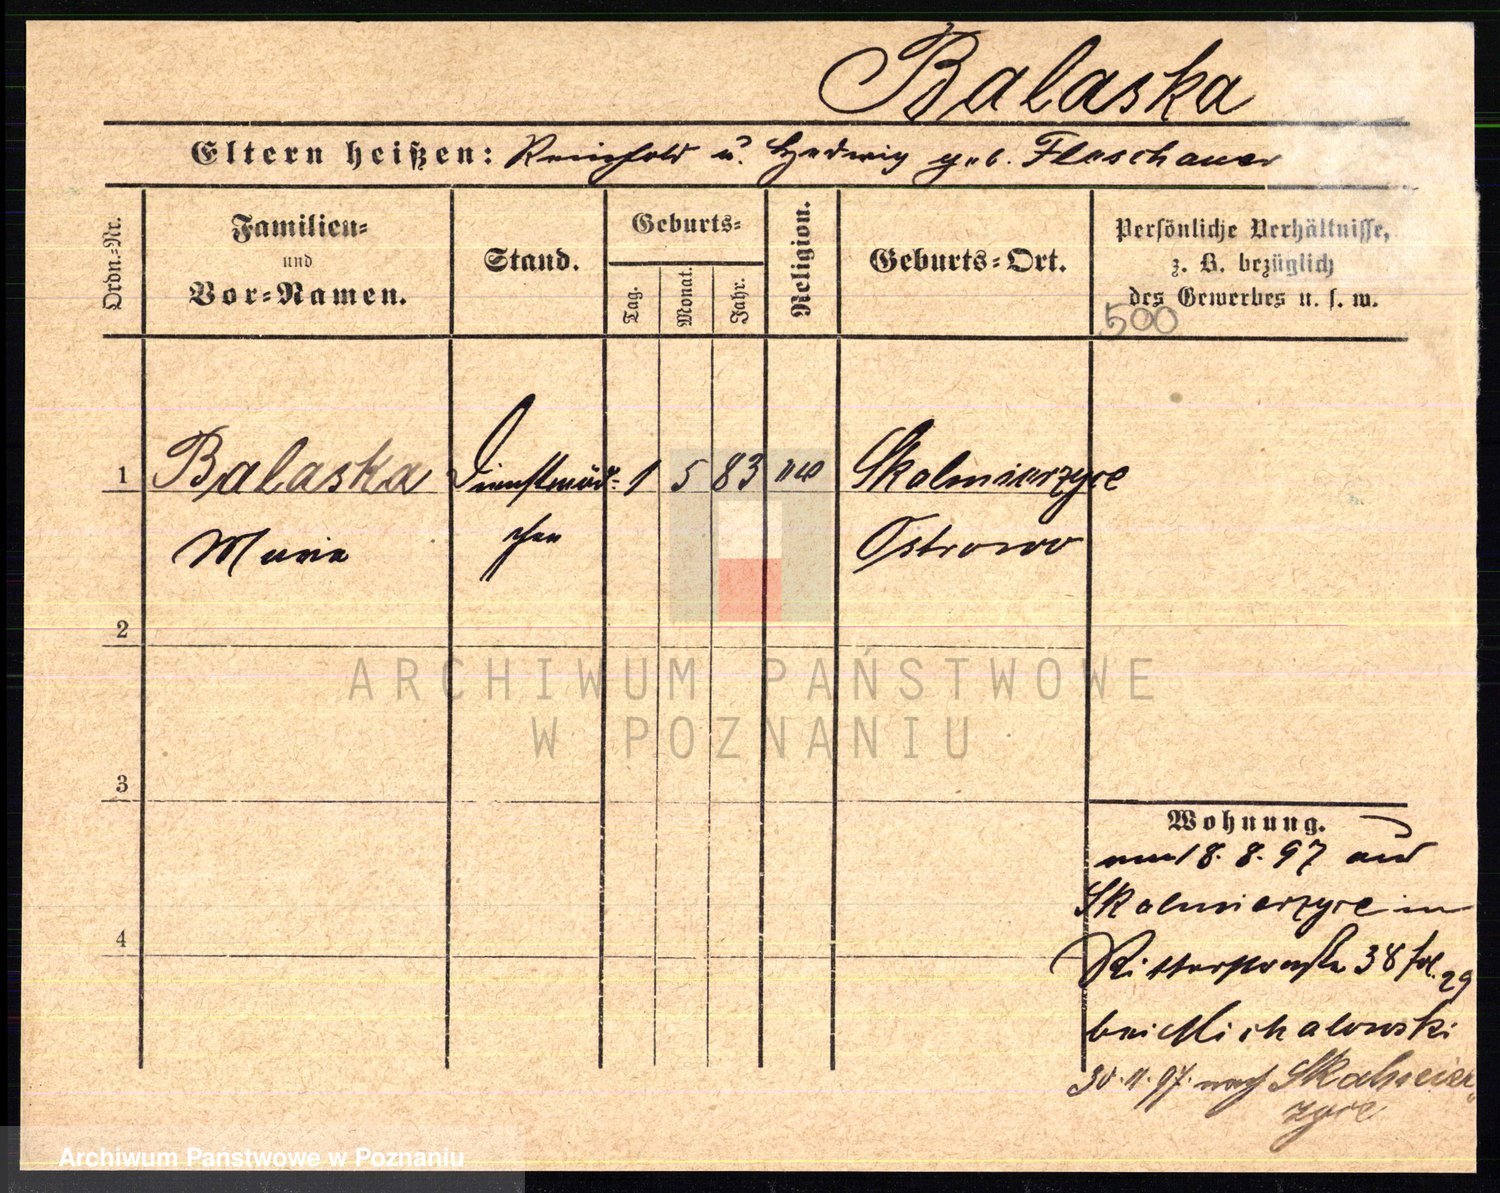 Balaska
Eltern heißen: Reinhold u. Hedwig geb. Flaschauer
Ordn.-Nr.
Familien-
und
Vor-Namen.
Stand.
Geburts-
Tag.
Monat.
Jahr.
Religion.
Geburts-Ort.
Persönliche Verhältnisse,
z. B. bezüglich
des Gewerbes u. s. w.
500
1 Balaska Dienstmäd- 1 5 83 Skalmierzyce
Marie chen Ostrowo
2
3
4
Wohnung.
18. 8. 97 aus
Skalmierzyce in
Ritterstraße 38 fol. 29
bei Michalowski
30. 11. 97. nach Skalmier
zyce
ARCHIWUM PAŃSTWOWE
W POZNANIU
Archiwum Państwowe w Poznaniu